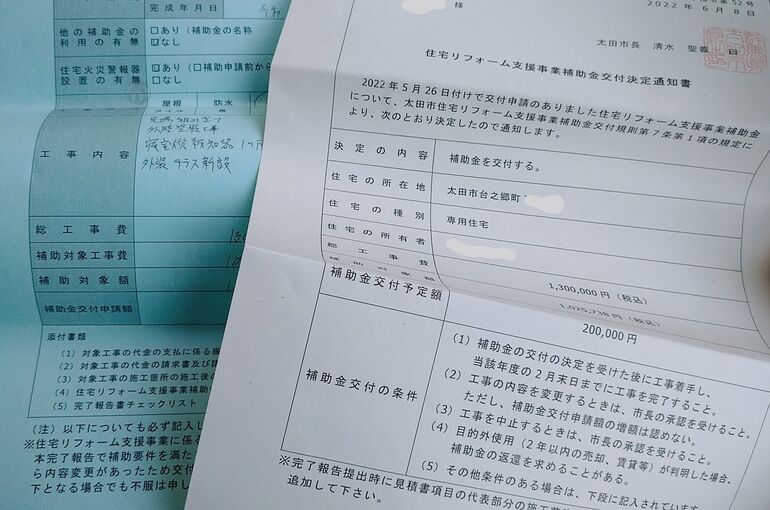 完成年月日
他の補助金の
利用の有無
あり（補助金の名称
なし
住宅火災警報器
設置の有無
あり（□補助申請前から
なし
屋根 防水
工事内容
外壁塗装工事
外装 テラス新設
総工事費
補助対象工事費
補助対象額
補助金交付申請額
添付書類
(1) 対象工事の代金の支払に係る
(2) 対象工事の代金の請求書及び
(3) 対象工事の施工箇所の施工後
(4) 住宅リフォーム支援事業補助
(5) 完了報告書チェックリスト
(注) 以下についても必ず記入し
※住宅リフォーム支援事業に係る
本完了報告で補助要件を満た
ら内容変更があったため交付
下となる場合でも不服は申し
様
第52号
2022年6月8日
太田市長 清水 聖義
住宅リフォーム支援事業補助金交付決定通知書
2022年5月26日付けで交付申請のありました住宅リフォーム支援事業補助金
について、太田市住宅リフォーム支援事業補助金交付規則第7条第1項の規定に
より、次のとおり決定したので通知します。
決定の内容 補助金を交付する。
住宅の所在地 太田市台之郷町
住宅の種別 専用住宅
住宅の所有者
総工事費 1,300,000円（税込）
補助対象額 1,025,738円（税込）
補助金交付予定額 200,000円
補助金交付の条件
(1) 補助金の交付の決定を受けた後に工事着手し、
当該年度の2月末日までに工事を完了すること。
(2) 工事の内容を変更するときは、市長の承認を受けること。
ただし、補助金交付申請額の増額は認めない。
(3) 工事を中止するときは、市長の承認を受けること。
(4) 目的外使用（2年以内の売却、賃貸等）が判明した場合、
補助金の返還を求めることがある。
(5) その他条件のある場合は、下段に記入されています
※完了報告提出時に見積書項目の代表部分の施工前
追加して下さい。